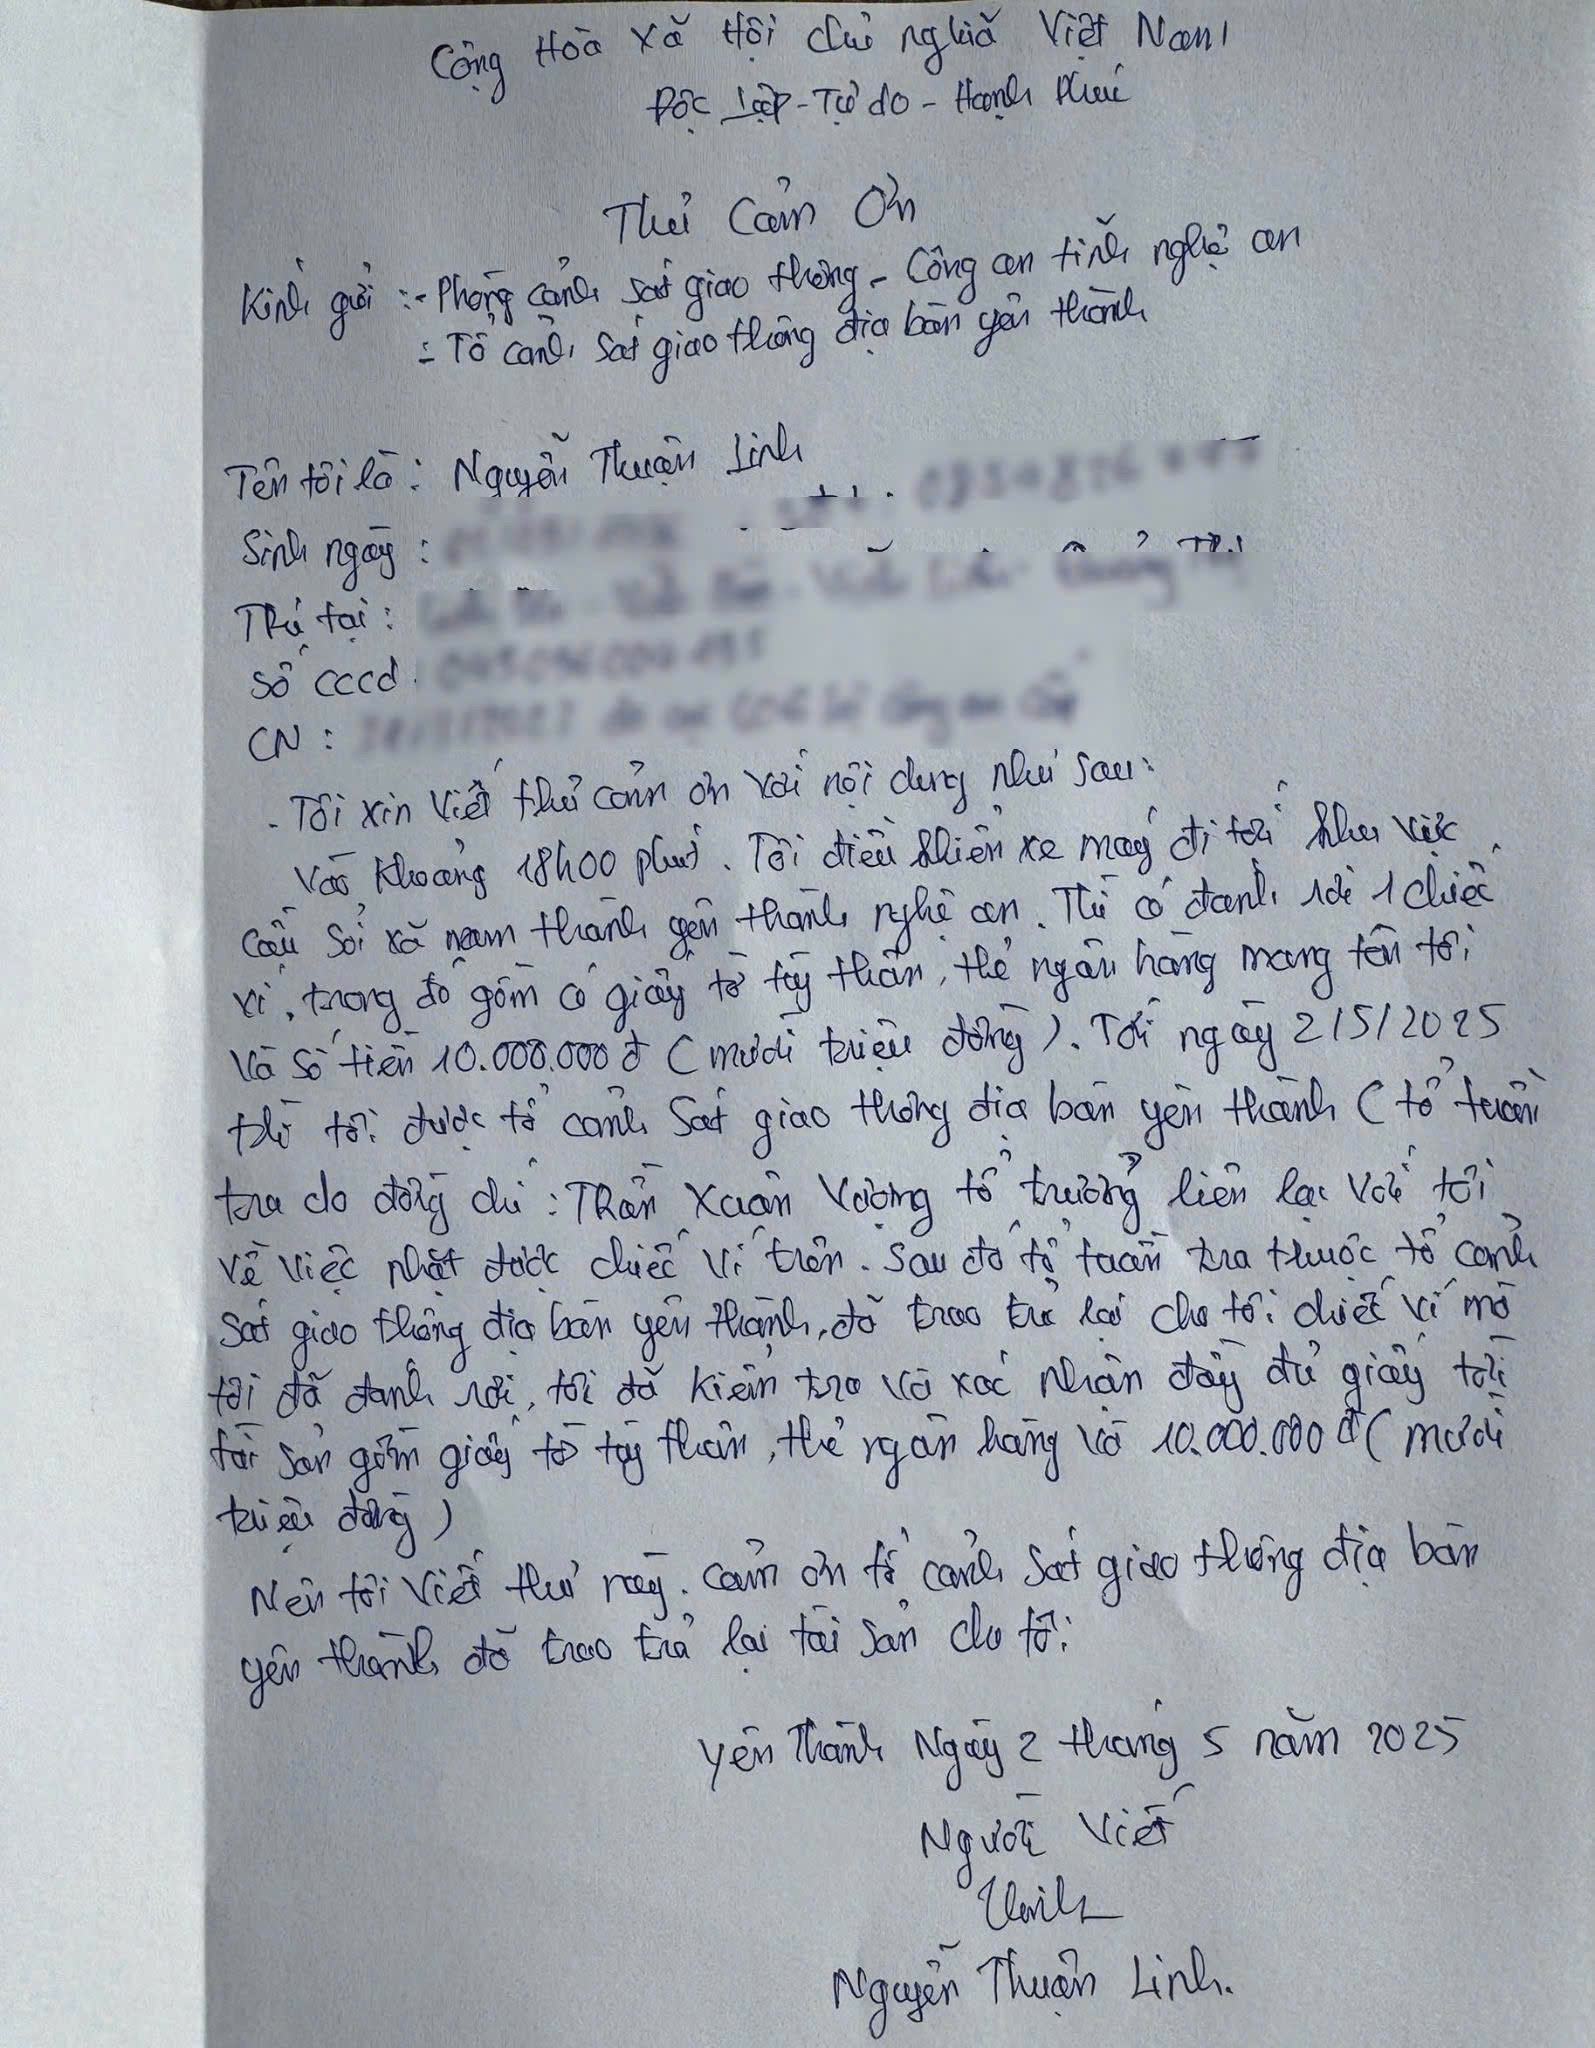 Cộng Hoà Xã Hội Chủ nghĩa Việt Nam
Độc Lập - Tự do - Hạnh Phúc
Thư Cảm Ơn
Kính gửi : - Phòng cảnh sát giao thông - Công an tỉnh nghệ an
- Tổ cảnh sát giao thông địa bàn yên thành
Tên tôi là : Nguyễn Thuận Linh
Sinh ngày :
Trú tại :
Số cccd
CN :
- Tôi xin viết thư cảm ơn với nội dung như sau:
Vào khoảng 18h00 phút. Tôi điều khiển xe máy đi tới khu vực
cầu Sỏi xã nam thành yên thành nghệ an. Thì có đánh rơi 1 chiếc
ví, trong đó gồm có giấy tờ tùy thân, thẻ ngân hàng mang tên tôi
và số tiền 10.000.000 đ ( mười triệu đồng ). Tới ngày 2/5/2025
thì tôi được tổ cảnh sát giao thông địa bàn yên thành ( tổ tuần
tra do đồng chí : Trần Xuân Vượng tổ trưởng liên lạc với tôi
về việc nhặt được chiếc ví trên. Sau đó tổ tuần tra thuộc tổ cảnh
sát giao thông địa bàn yên thành, đã trao trả lại cho tôi chiếc ví mà
tôi đã đánh rơi, tôi đã kiểm tra và xác nhận đầy đủ giấy tờ
tài sản gồm giấy tờ tùy thân, thẻ ngân hàng và 10.000.000 đ ( mười
triệu đồng )
Nên tôi viết thư này. cảm ơn tổ cảnh sát giao thông địa bàn
yên thành đã trao trả lại tài sản cho tôi
Yên Thành Ngày 2 tháng 5 năm 2025
Người Viết
Linh
Nguyễn Thuận Linh.